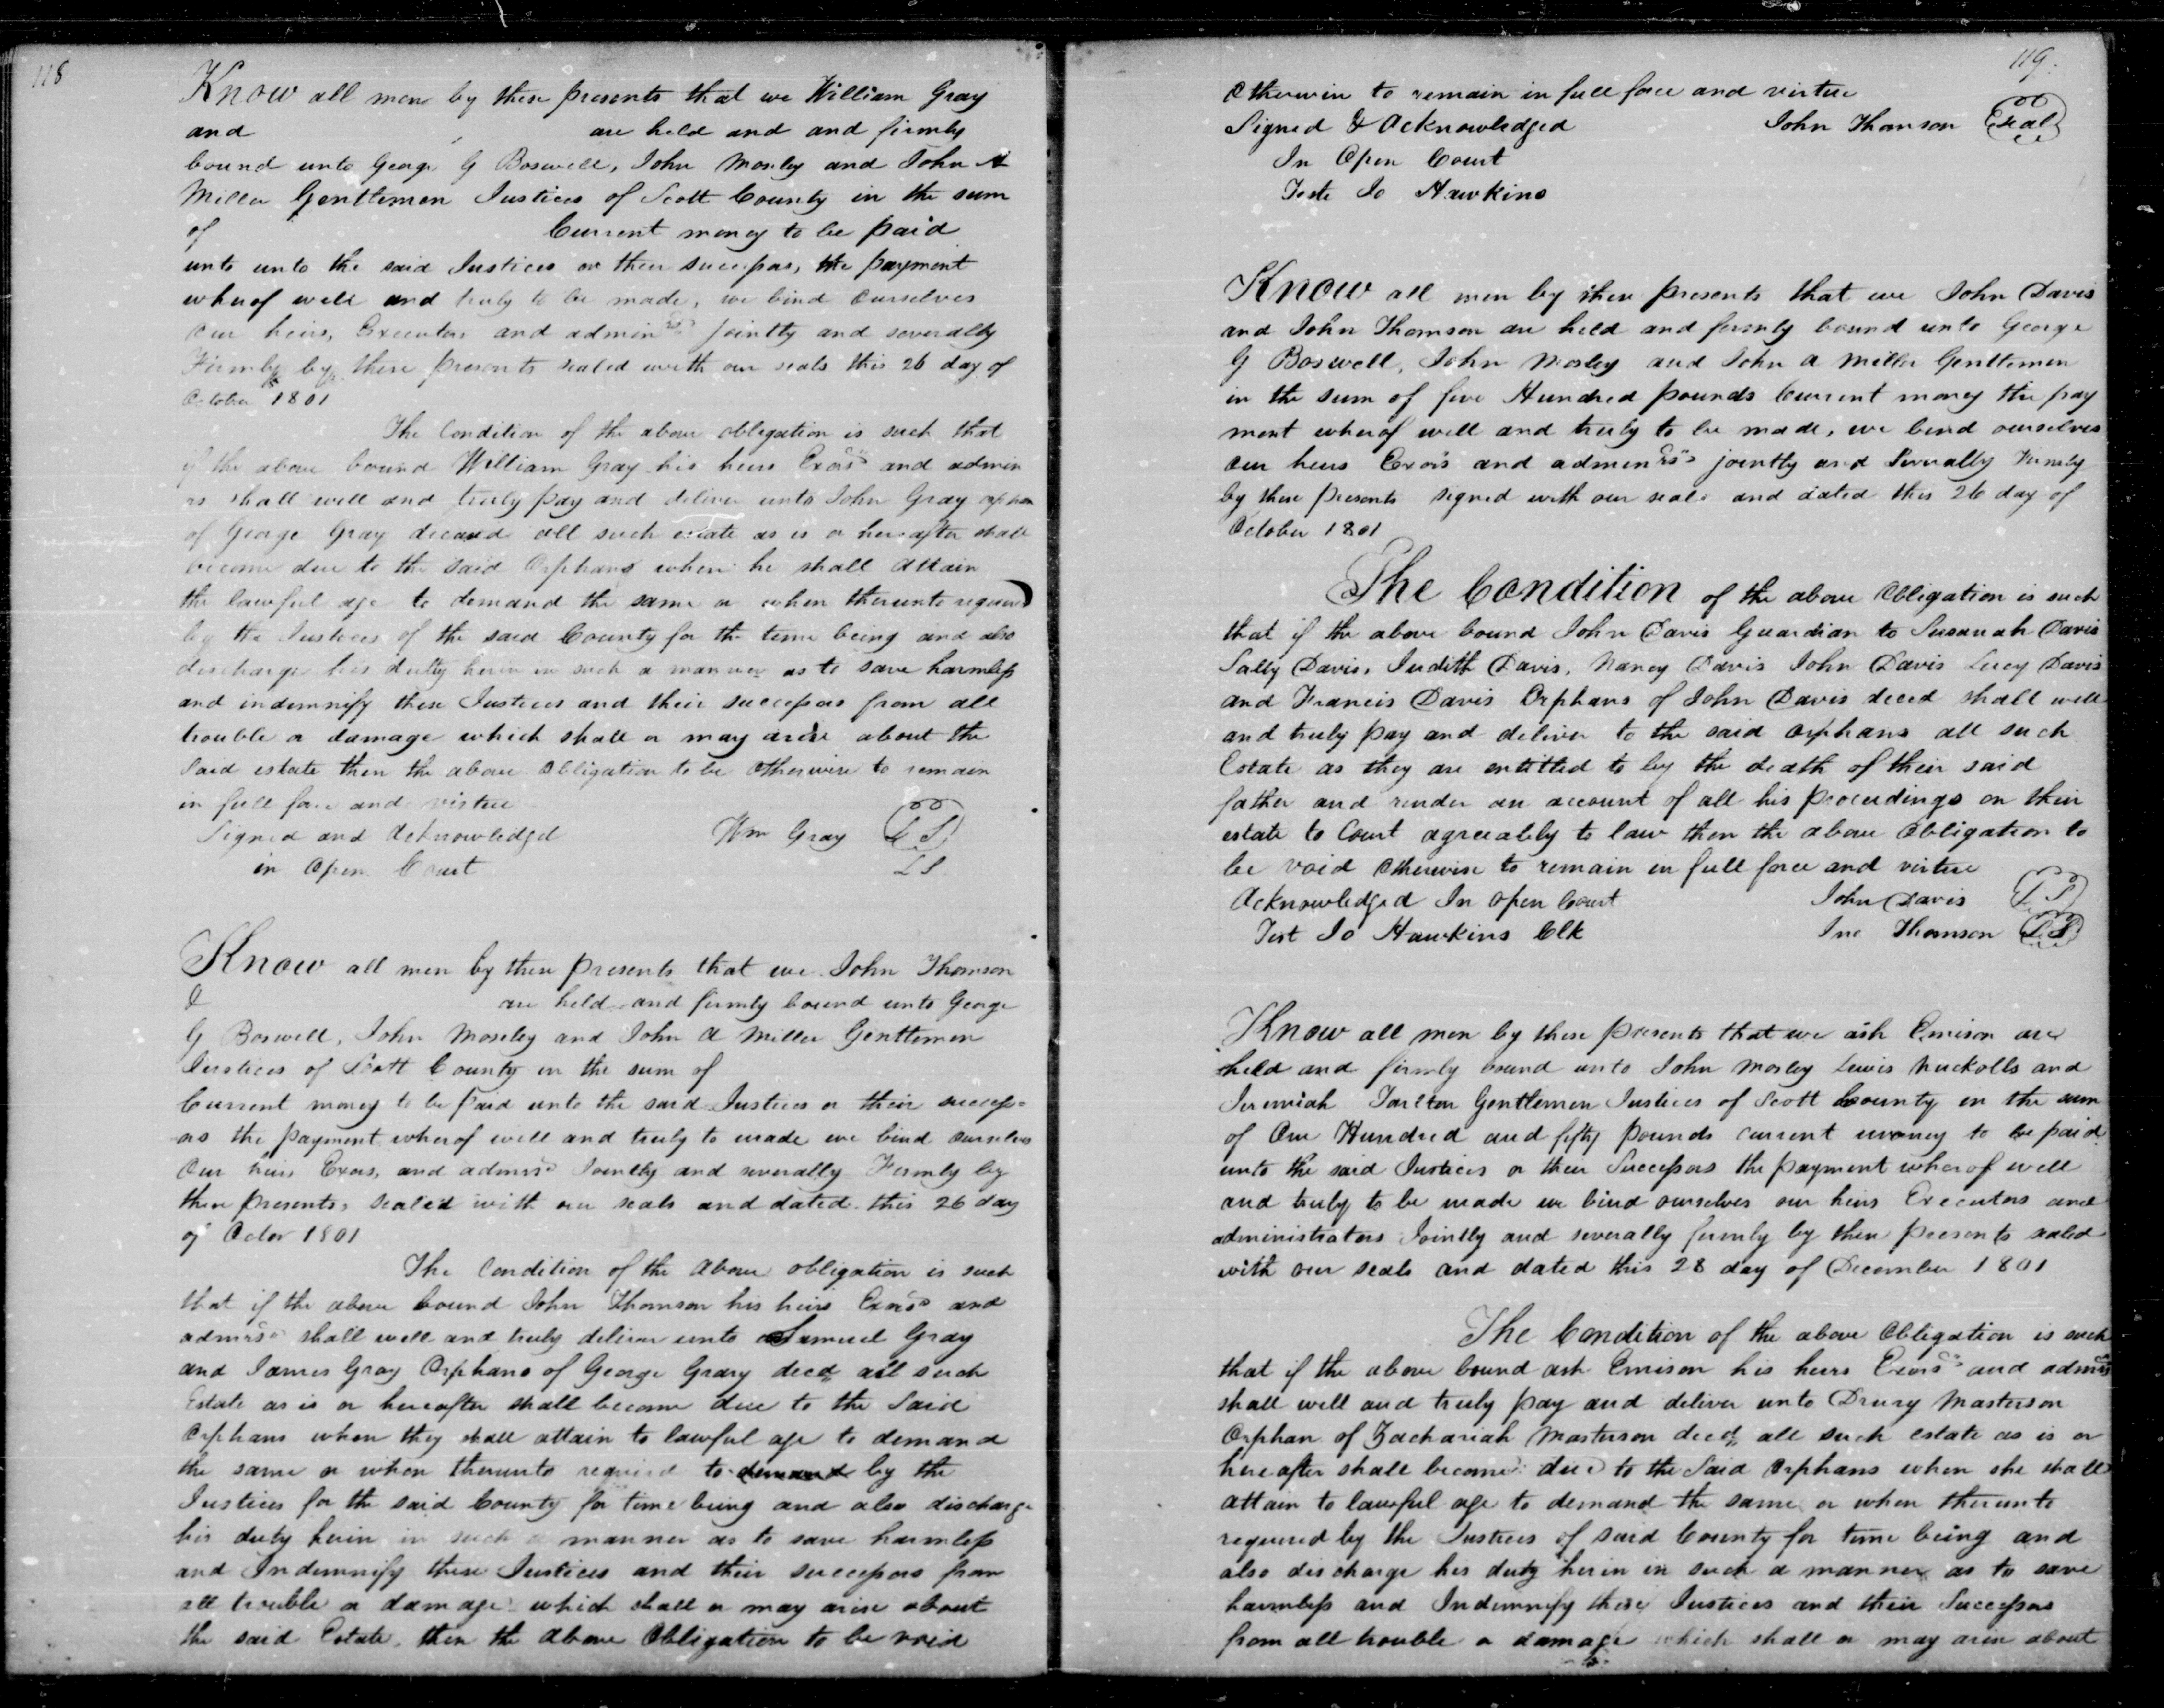 118
Know all men by these presents that we William Gray
and are held and and firmly
bound unto George G Boswell, John Mosley and John A
Miller Gentlemen Justices of Scott County in the sum
of Current money to be paid
unto unto the said Justices or their successors, the payment
wherof well and truly to be made, we bind ourselves
our heirs, Executors and admin rs jointly and severally
Firmly by these presents sealed with our seals this 26 day of
October 1801
The Condition of the above obligation is such that
if the above bound William Gray his heirs Exors and admin
rs shall well and truly pay and deliver unto John Gray orphan
of George Gray deceased all such estate as is or hereafter shall
become due to the said Orphans when he shall attain
the lawful age to demand the same or when therunto required
by the Justices of the said County for the time being and also
discharge his dutty herein in such a manner as to save harmless
and indemnify these Justices and their successors from all
trouble or damage which shall or may arise about the
Said estate then the above Obligation to be otherwise to remain
in full force and virtue
Signed and Acknowledged Wm Gray L S
in Open Court L S
Know all men by these presents that we John Thomson
& are held and firmly bound unto George
G Boswell, John Moseley and John A Miller Gentlemen
Justices of Scott County in the sum of
Current money to be paid unto the said Justices or their success=
ors the payment wherof well and truly to made we bind ourselves
Our heirs Exors, and admrs Jointly and severally Firmly by
these presents, sealed with our seals and dated this 26 day
of Octor 1801
The Condition of the above obligation is such
that if the above bound John Thomson his heirs Exors and
admrs shall well and truly deliver unto Samuel Gray
and James Gray Orphans of George Grary decd all such
Estate as is or hereafter shall become due to the Said
Orphans when they shall attain to lawful age to demand
the same or when therunto required to demand by the
Justices for the said County for time being and also discharge
his duty herin in such a manner as to save harmless
and Indemnify these Justices and their successors from
all trouble or damage which shall or may arise about
the said Estate, then the above Obligation to be void
119.
Otherwise to remain in full force and virtue
Signed & Acknowledged John Thomson Seal
In Open Court
Teste Jo Hawkins
Know all men by these presents that we John Davis
and John Thomson are held and firmly bound unto George
G Boswell, John Mosley and John A Miller Gentlemen
in the sum of five Hundred pounds Current money the pay
ment wherof well and truly to be made, we bend ourselves
our heirs Exors and admenrs jointly and Severally Firmly
by these presents signed with our seals and dated this 26 day of
October 1801
The Condition of the above Obligation is such
that if the above bound John Davis Guardian to Susanah Davis
Sally Davis, Judith Davis, Nancy Davis John Davis Lucy Davis
and Francis Davis Orphans of John Davis deced shall well
and truly pay and deliver to the said orphans all such
Estate as they are entitled to by the death of their said
father and render an account of all his proceedings on their
estate to Court agreeably to law then the above Obligation to
be void Otherwise to remain in full force and virtue
Acknowledged In open Court John Davis L S
Test Jo Hawkins Clk Jno Thomson L S
Know all men by these presents that we ash Emison are
held and firmly bound unto John Mosley Lewis Nuckolls and
Jeremiah Tarlton Gentlemen Justices of Scott County in the sum
of One Hundred and fifty pounds current money to be paid
unto the said Justices or their Successors the payment wherof well
and truly to be made we bind ourselves our heirs Executors and
administrators Jointly and severally firmly by these presents sealed
with our seals and dated this 28 day of December 1801
The Condition of the above Obligation is such
that if the above bound ash Emison his heirs Exors and admrs
shall well and truly pay and deliver unto Drury Masterson
Orphan of Zachariah Masterson decd all such estate as is or
hereafter shall become due to the Said Orphans when she shall
attain to lawful age to demand the same or when therunto
required by the Justices of said County for time being and
also discharge his duty herin in such a manner as to save
harmless and Indemnify these Justices and their Successors
from all trouble or damage which shall or may arise about